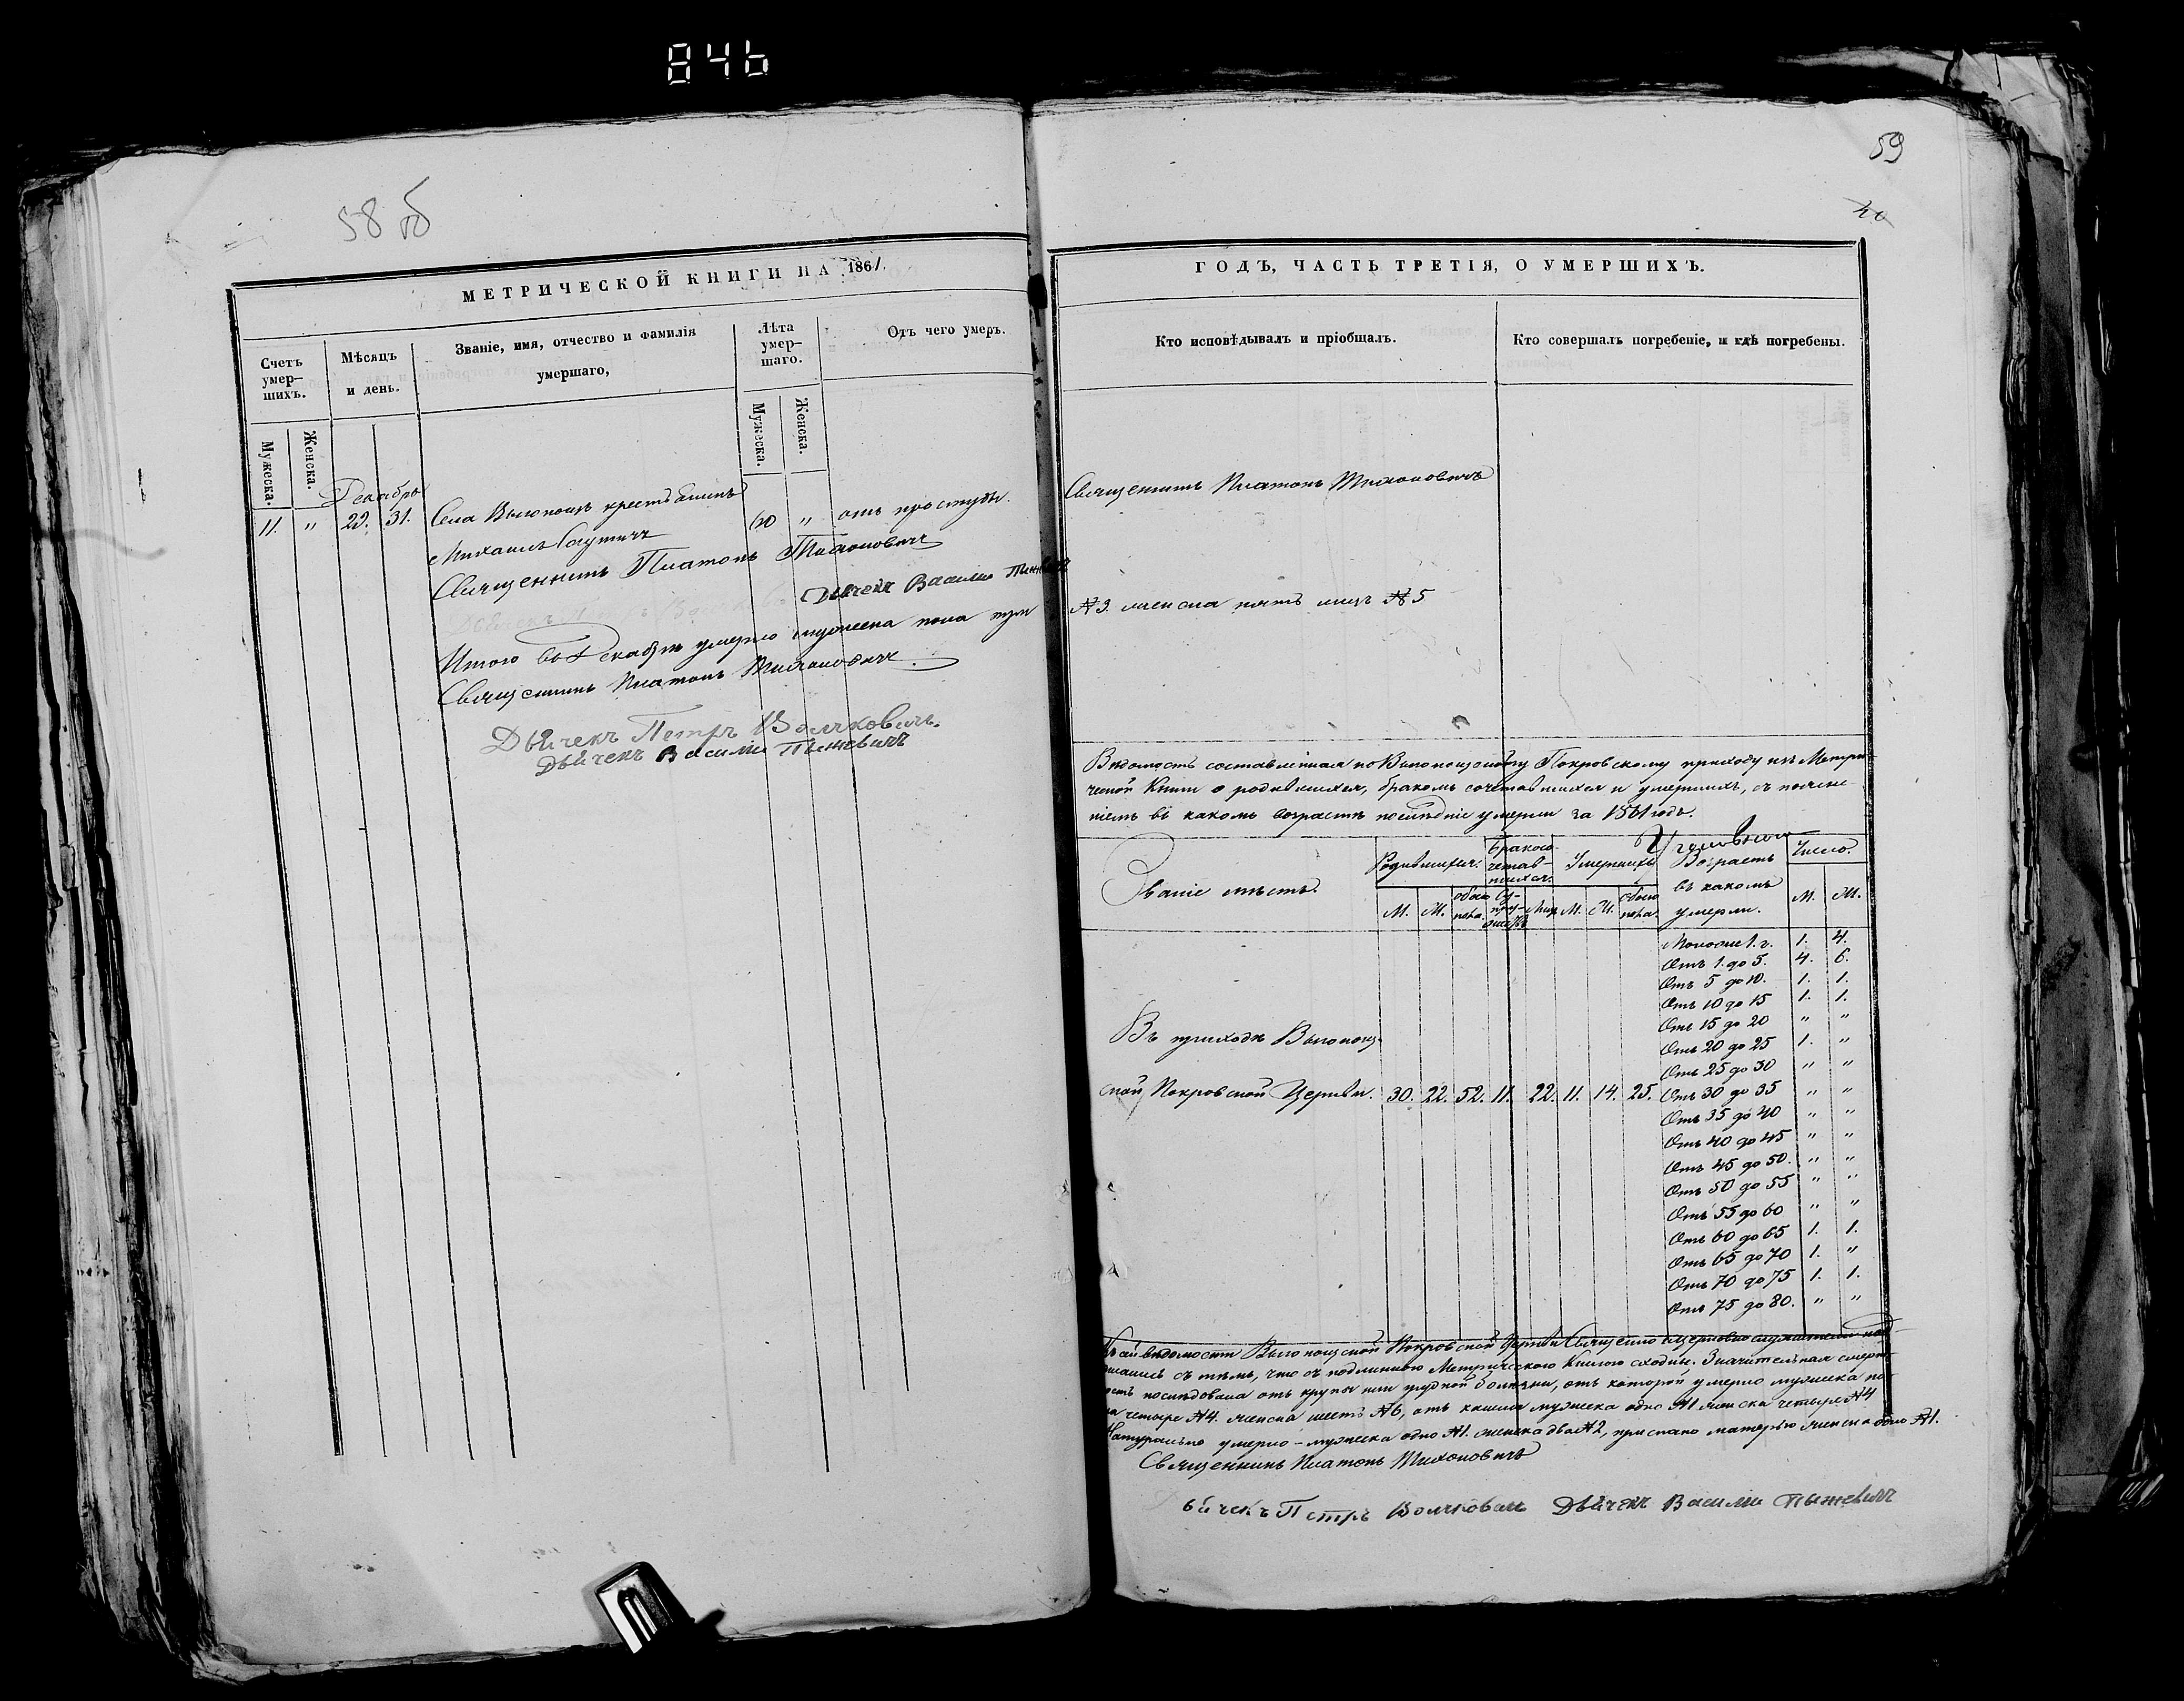 846
58 об
59
40
МЕТРИЧЕСКОЙ КНИГИ НА 1861.
Счетъ умер-шихъ.
Мѣсяцъ и день.
Званіе, имя, отчество и фамилія умершаго,
Лѣта умер-шаго.
Отъ чего умеръ.
Мужеска.
Женска.
Мужеска.
Женска.
Декабрь
11. " 29. 31. Села Выгонощъ крестьянинъ 60 " отъ простуды.
Михаилъ
Священникъ Платонъ Тихоновичъ
Дьячекъ Василій
Итого въ Декабрѣ умерло мужеска пола три
Священникъ Платонъ Тихоновичъ
Дьячекъ Петръ Волчковичъ.
Дьячекъ Василій Пыжевичъ
ГОДЪ, ЧАСТЬ ТРЕТІЯ, О УМЕРШИХЪ.
Кто исповѣдывалъ и пріобщалъ.
Кто совершалъ погребеніе, и гдѣ погребены.
Священникъ Платонъ Тихоновичъ
№3. женска пять лицъ №5
Вѣдомость составленная по Выгонощскому Покровскому приходу изъ Метри-
ческой Книги о родившихся, бракомъ сочетавшихся и умершихъ, съ поясне-
ніемъ въ какомъ возрастѣ послѣдніе умерли за 1861 годъ.
Званіе мѣстъ.
Родившихся.
Бракосо-
четав-
шихся.
Умершихъ
Возрастъ
въ какомъ
умерли.
Число.
М. Ж. обоего пола. Су-пру-жествъ Лицъ М. Ж. обоего пола. М. Ж.
Моложе 1. г. 1. 4.
Отъ 1. до 5. 4. 6.
Отъ 5 до 10. 1. 1.
Отъ 10 до 15 1. 1.
Отъ 15 до 20 " "
Отъ 20 до 25 1. "
Отъ 25 до 30 " "
Въ приходѣ Выгонощ-
ской Покровской Церкви. 30. 22. 52. 11. 22. 11. 14. 25. Отъ 30 до 35 " "
Отъ 35 до 40 " "
Отъ 40 до 45 " "
Отъ 45 до 50. " "
Отъ 50 до 55 " "
Отъ 55 до 60 " "
Отъ 60 до 65 1. 1.
Отъ 65 до 70 1. "
Отъ 70 до 75 1. 1.
Отъ 75 до 80. " "
вѣдомости Выгонощской Покровской Церкви Священно церковно служители под-
писались съ тѣмъ, что съ подлинною Метрическою Книгою сходны. Значительная смерт-
ность послѣдовала отъ крупы или грудной болѣзни, отъ которой умерло мужеска по-
ла четыре №4. женска шесть №6, отъ кашля мужеска одно №1 женска четыре №4
Натурально умерло - мужеска одно №1. женска два №2, приспано матерью женска одно №1.
Священникъ Платонъ Тихоновичъ
Дьячекъ Петръ Волчковичъ Дьячекъ Василій Пыжевичъ